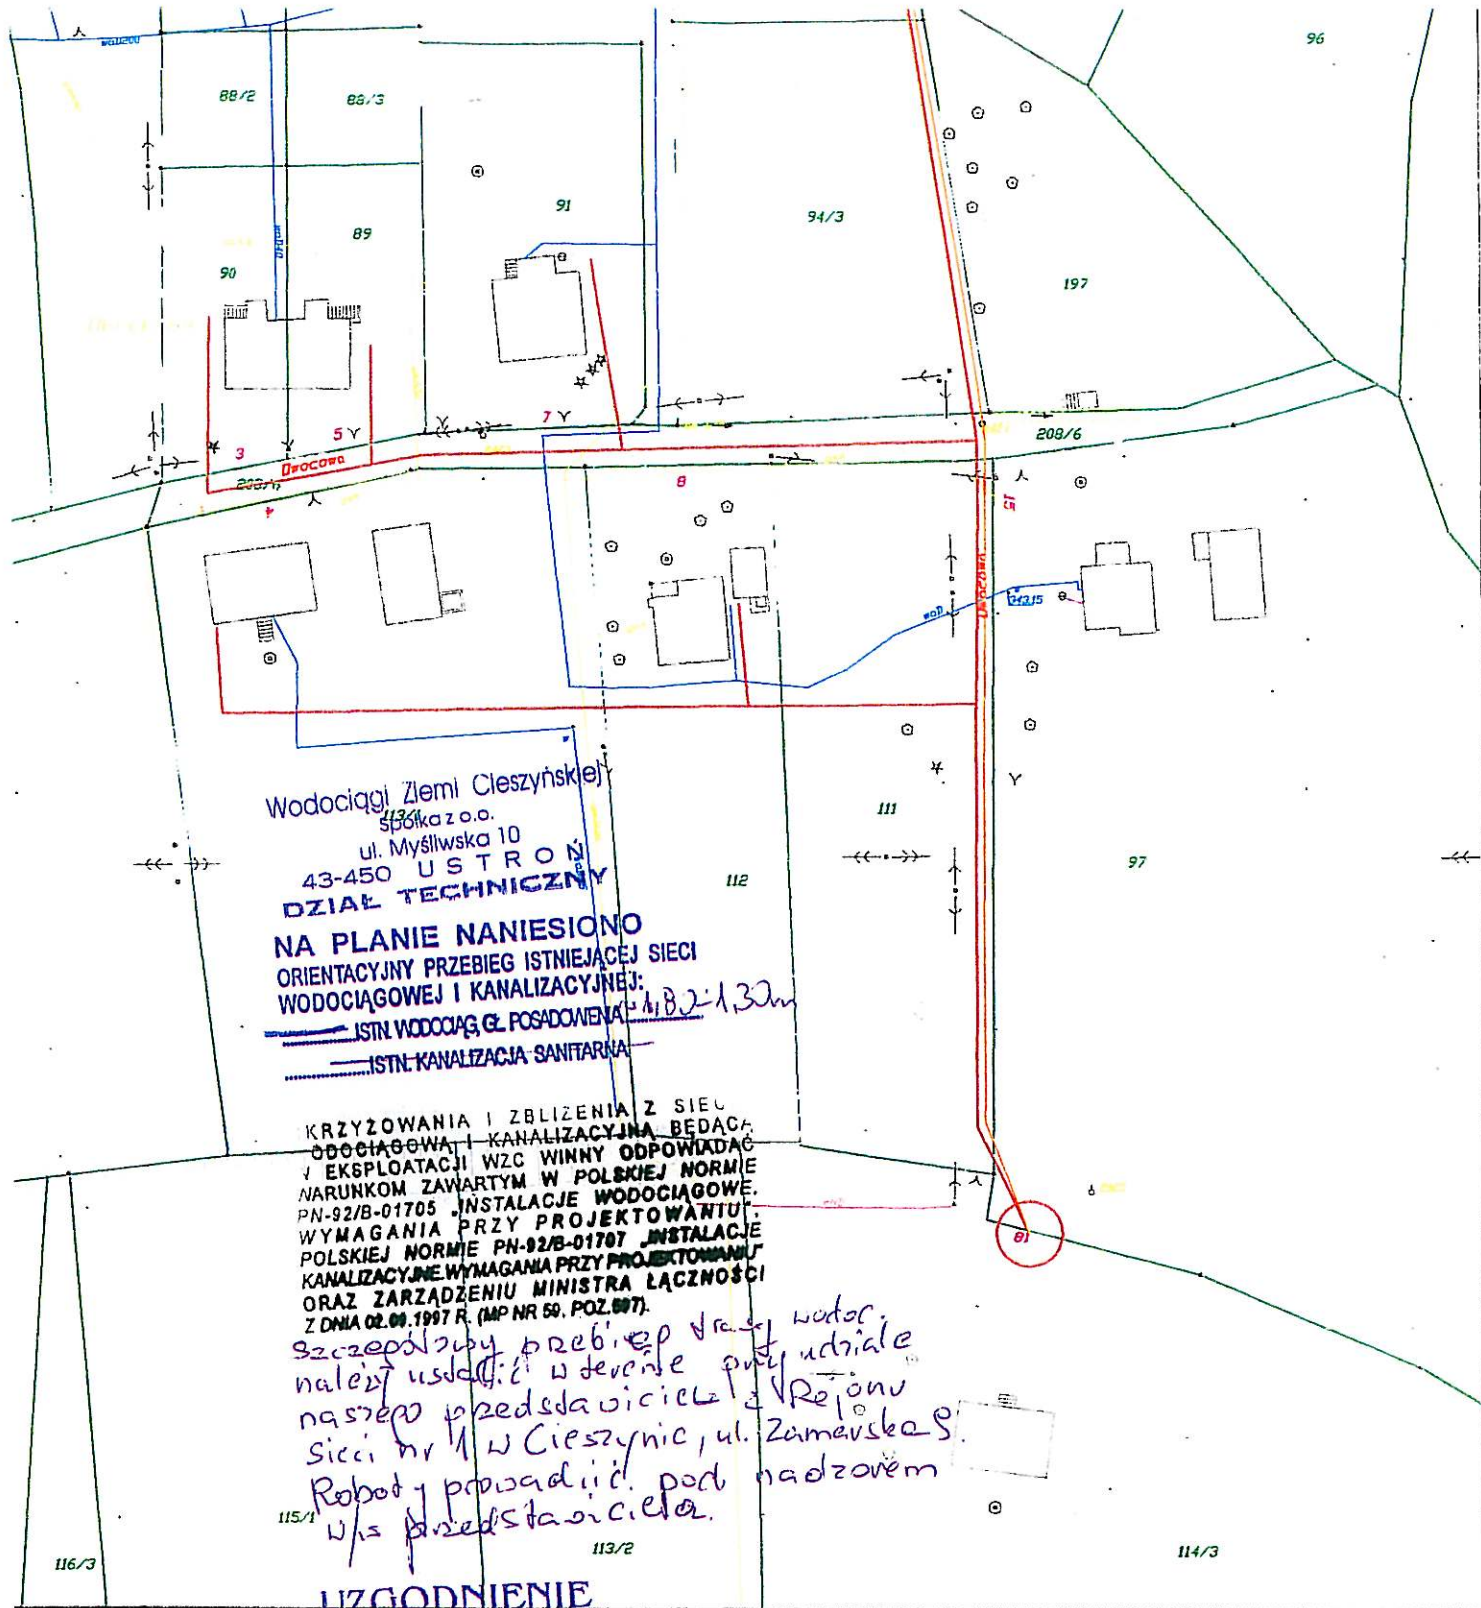 96
88/2
88/3
91
94/3
89
90
197
7
208/6
5
3
Owocowa
8
4
15
Owocowa
woD
Wodociągi Ziemi Cieszyńskiej
spółka z o.o.
113/1
111
ul. Myśliwska 10
43-450 USTROŃ
DZIAŁ TECHNICZNY
97
112
NA PLANIE NANIESIONO
ORIENTACYJNY PRZEBIEG ISTNIEJĄCEJ SIECI
WODOCIĄGOWEJ I KANALIZACYJNEJ:
ISTN. WODOCIĄG, GŁ. POSADOWIENIA 1,80-1,30m
ISTN. KANALIZACJA SANITARNA
KRZYŻOWANIA I ZBLIŻENIA Z SIEC
ODOCIĄGOWĄ I KANALIZACYJNĄ BĘDĄCĄ
EKSPLOATACJI WZC WINNY ODPOWIADAĆ
WARUNKOM ZAWARTYM W POLSKIEJ NORMIE
PN-92/B-01705 „INSTALACJE WODOCIĄGOWE.
WYMAGANIA PRZY PROJEKTOWANIU".
POLSKIEJ NORMIE PN-92/B-01707 „INSTALACJE
KANALIZACYJNE. WYMAGANIA PRZY PROJEKTOWANIU"
ORAZ ZARZĄDZENIU MINISTRA ŁĄCZNOŚCI
Z DNIA 02.09.1997 R. (MP NR 59, POZ.597).
81
Szczegółowy przebieg trasy wodoc.
należy ustalić w terenie przy udziale
naszego przedstawiciela z Rejonu
Sieci nr 1 w Cieszynie, ul. Zamarska 8.
Roboty prowadzić pod nadzorem
w/s przedstawiciela.
115/1
116/3
113/2
114/3
UZGODNIENIE